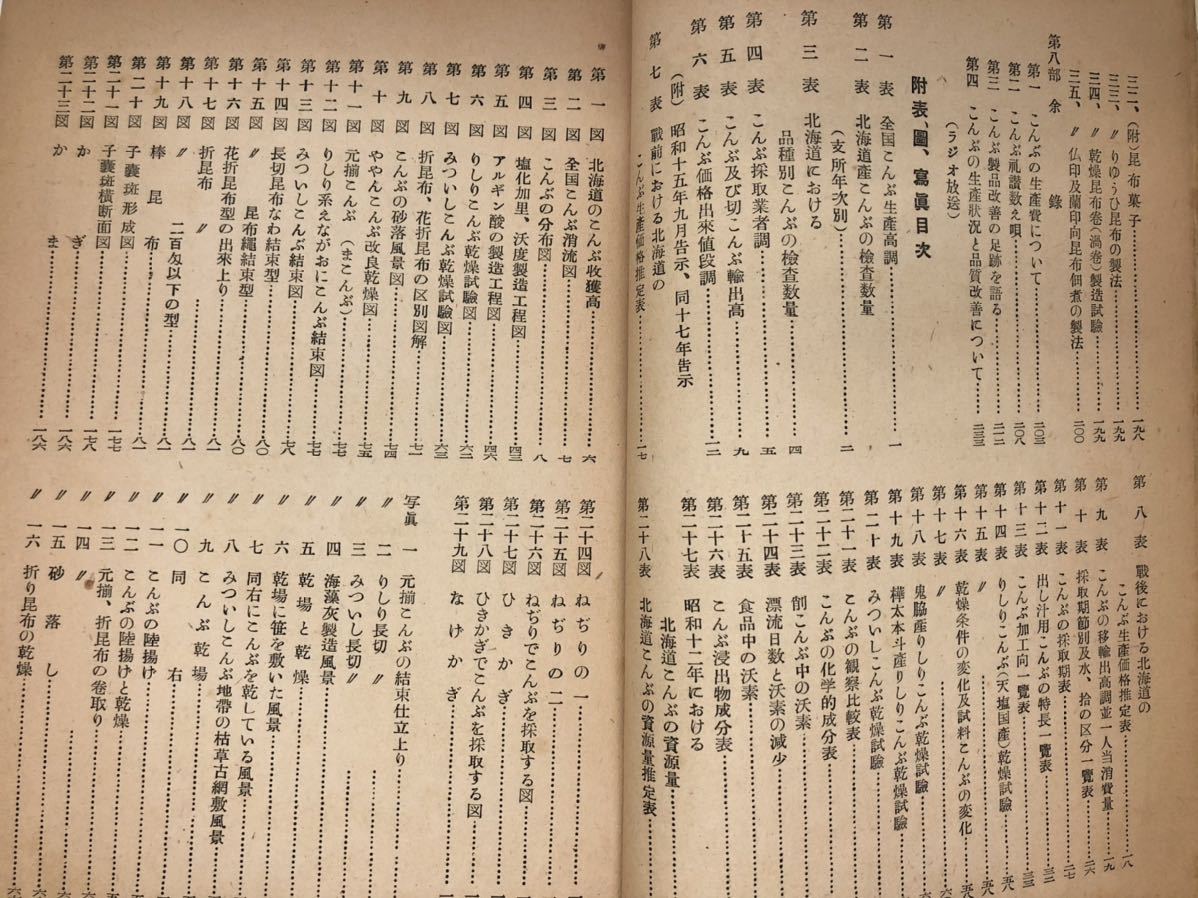 三二、(附)昆布菓子………一九八
三三、〃りゆうひ昆布の製法………一九九
三四、〃乾燥昆布卷(渦卷)製造試驗………一九九
三五、〃仏印及蘭印向昆布佃煮の製法………二〇〇
第八部 余錄
第一 こんぶの生產費について………二〇三
第二 こんぶ礼讃数え唄………二〇八
第三 こんぶ製品改善の足跡を語る………二一二
第四 こんぶの生產狀況と品質改善について………二三三
(ラジオ放送)
附表、圖、寫眞目次
第一表 全国こんぶ生產高調………一
第二表 北海道產こんぶの檢査数量
(支所年次別)………二
第三表 北海道における
品種別こんぶの檢査数量………四
第四表 こんぶ採取業者調………五
第五表 こんぶ及び切こんぶ輸出高………九
第六表 こんぶ価格出來値段調………一一
(附)昭和十五年九月告示、同十七年告示
第七表 戰前における北海道の
こんぶ生產価格推定表………一七
第八表 戰後における北海道の
こんぶ生產価格推定表………一八
第九表 こんぶの移輸出高調並一人当消費量………一九
第十表 採取期節別及水、拾の区分一覽表………二六
第十一表 こんぶの採取期表………二七
第十二表 出し汁用こんぶの特長一覽表………三二
第十三表 こんぶ加工向一覽表………三三
第十四表 りしりこんぶ(天塩国産)乾燥試驗………五八
第十五表 〃………五八
第十六表 乾燥条件の変化及試料こんぶの変化………五九
第十七表 〃………
第十八表 鬼脇産りしりこんぶ乾燥試驗………
第十九表 樺太本斗産りしりこんぶ乾燥試驗
第二十表 みついしこんぶ乾燥試驗………
第二十一表 こんぶの観察比較表………
第二十二表 こんぶの化学的成分表………
第二十三表 削こんぶ中の沃素………
第二十四表 漂流日数と沃素の減少………
第二十五表 食品中の沃素………
第二十六表 こんぶ浸出物成分表………
第二十七表 昭和十二年における
北海道こんぶの資源量………
第二十八表 北海道こんぶの資源量推定表………
第一図 北海道のこんぶ收獲高………六
第二図 全国こんぶ消流図………七
第三図 こんぶの分布図………八
第四図 塩化加里、沃度製造工程図………四三
第五図 アルギン酸の製造工程図………四六
第六図 りしりこんぶ乾燥試驗図………六二
第七図 みついしこんぶ乾燥試驗図………六三
第八図 折昆布、花折昆布の区別図解………七一
第九図 こんぶの砂落風景図………七四
第十図 ややんこんぶ改良乾燥図………七五
第十一図 元揃こんぶ(まこんぶ)………七七
第十二図 りしり系えながおにこんぶ結束図………七七
第十三図 みついしこんぶ結束図………七八
第十四図 長切昆布なわ結束型………八〇
第十五図 〃 昆布繩結束型………八〇
第十六図 花折昆布型の出來上り………八〇
第十七図 折昆布 〃………八一
第十八図 〃 二百匁以下の型………八一
第十九図 棒昆布………八一
第二十図 子嚢斑形成図………八一
第二十一図 子嚢斑橫断面図………一七七
第二十二図 かぎ………一七八
第二十三図 かま………一八六
第二十四図 ねぢりの一………
第二十五図 ねぢりの二………
第二十六図 ねぢりでこんぶを採取する図………
第二十七図 ひきかぎ………
第二十八図 ひきかぎでこんぶを採取する図………
第二十九図 なげかぎ………
写眞一 元揃こんぶの結束仕立上り………
〃 二 りしり長切 〃………
〃 三 みついし長切〃………
〃 四 海藻灰製造風景………
〃 五 乾場と乾燥………
〃 六 乾場に笹を敷いた風景………
〃 七 同右にこんぶを乾している風景………
〃 八 みついしこんぶ地帶の枯草古網敷風景
〃 九 こんぶ乾場………
〃 一〇 同右………
〃 一一 こんぶの陸揚げ………
〃 一二 こんぶの陸揚げと乾燥………
〃 一三 元揃、折昆布の卷取り………
〃 一四 〃………
〃 一五 砂落し………
〃 一六 折り昆布の乾燥………